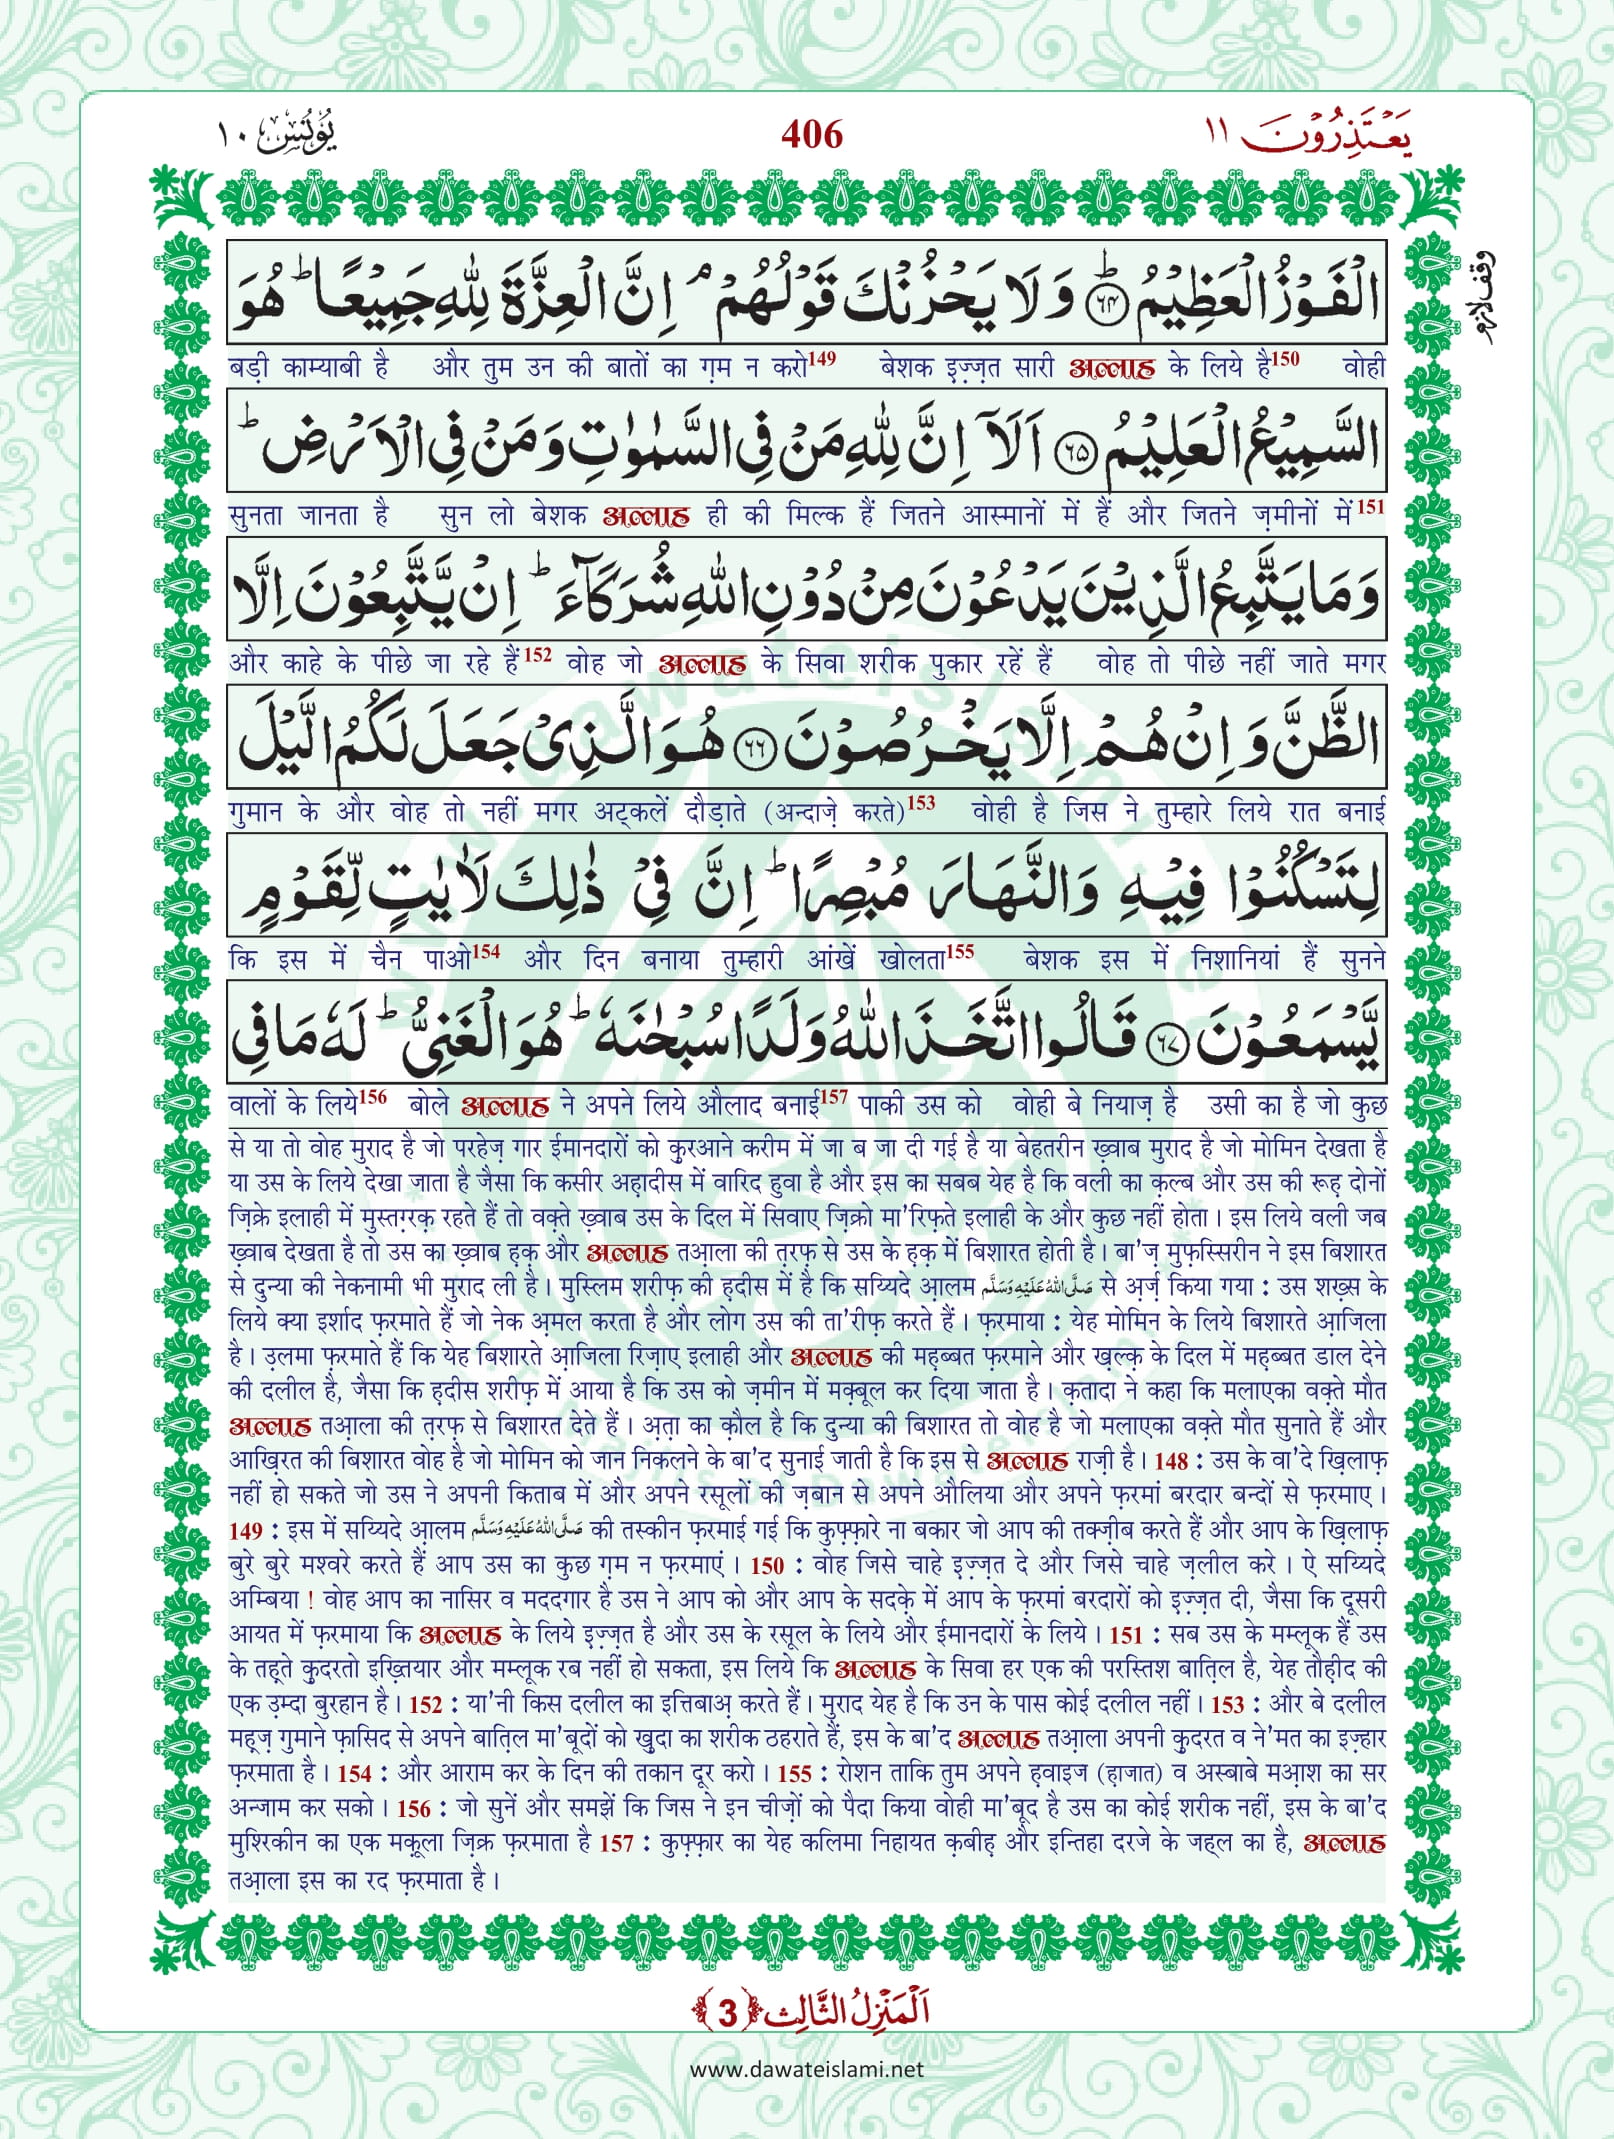 يَعْتَذِرُوْنَ ١١
406
يُوْنُس ١٠
الْفَوْزُ الْعَظِیْمُ ؕ﴿۶۴﴾ وَ لَا یَحْزُنْكَ قَوْلُهُمْ ۘ اِنَّ الْعِزَّةَ لِلّٰهِ جَمِیْعًا ؕ هُوَ
وقف لازم
बड़ी काम्याबी है और तुम उन की बातों का ग़म न करो149 बेशक इज़्ज़त सारी अल्लाह के लिये है150 वोही
السَّمِیْعُ الْعَلِیْمُ ﴿۶۵﴾ اَلَاۤ اِنَّ لِلّٰهِ مَنْ فِی السَّمٰوٰتِ وَ مَنْ فِی الْاَرْضِ ؕ
सुनता जानता है सुन लो बेशक अल्लाह ही की मिल्क हैं जितने आस्मानों में हैं और जितने ज़मीनों में151
وَ مَا یَتَّبِعُ الَّذِیْنَ یَدْعُوْنَ مِنْ دُوْنِ اللّٰهِ شُرَكَآءَ ؕ اِنْ یَّتَّبِعُوْنَ اِلَّا
और काहे के पीछे जा रहे हैं152 वोह जो अल्लाह के सिवा शरीक पुकार रहें हैं वोह तो पीछे नहीं जाते मगर
الظَّنَّ وَ اِنْ هُمْ اِلَّا یَخْرُصُوْنَ ﴿۶۶﴾ هُوَ الَّذِیْ جَعَلَ لَكُمُ الَّیْلَ
गुमान के और वोह तो नहीं मगर अट्कलें दौड़ाते (अन्दाज़े करते)153 वोही है जिस ने तुम्हारे लिये रात बनाई
لِتَسْكُنُوْا فِیْهِ وَ النَّهَارَ مُبْصِرًا ؕ اِنَّ فِیْ ذٰلِكَ لَاٰیٰتٍ لِّقَوْمٍ
कि इस में चैन पाओ154 और दिन बनाया तुम्हारी आंखें खोलता155 बेशक इस में निशानियां हैं सुनने
یَّسْمَعُوْنَ ﴿۶۷﴾ قَالُوا اتَّخَذَ اللّٰهُ وَلَدًا سُبْحٰنَهٗ ؕ هُوَ الْغَنِیُّ ؕ لَهٗ مَا فِی
वालों के लिये156 बोले अल्लाह ने अपने लिये औलाद बनाई157 पाकी उस को वोही बे नियाज़ है उसी का है जो कुछ
से या तो वोह मुराद है जो परहेज़ गार ईमानदारों को क़ुरआने करीम में जा ब जा दी गई है या बेहतरीन ख़्वाब मुराद है जो मोमिन देखता है
या उस के लिये देखा जाता है जैसा कि कसीर अह़ादीस में वारिद हुवा है और इस का सबब येह है कि वली का क़ल्ब और उस की रूह़ दोनों
ज़िक्रे इलाही में मुस्तग़्रक़ रहते हैं तो वक़्ते ख़्वाब उस के दिल में सिवाए ज़िक्रो मा'रिफ़ते इलाही के और कुछ नहीं होता । इस लिये वली जब
ख़्वाब देखता है तो उस का ख़्वाब ह़क़ और अल्लाह तआ़ला की त़रफ़ से उस के ह़क़ में बिशारत होती है । बा'ज़ मुफ़स्सिरीन ने इस बिशारत
से दुन्या की नेकनामी भी मुराद ली है । मुस्लिम शरीफ़ की ह़दीस में है कि सय्यिदे आ़लम صَلَّى اللهُ عَلَيْهِ وَسَلَّم से अ़र्ज़ किया गया : उस शख़्स के
लिये क्या इर्शाद फ़रमाते हैं जो नेक अ़मल करता है और लोग उस की ता'रीफ़ करते हैं । फ़रमाया : येह मोमिन के लिये बिशारते आ़जिला
है । उ़लमा फ़रमाते हैं कि येह बिशारते आ़जिला रिज़ाए इलाही और अल्लाह की मह़ब्बत फ़रमाने और ख़ल्क़ के दिल में मह़ब्बत डाल देने
की दलील है, जैसा कि ह़दीस शरीफ़ में आया है कि उस को ज़मीन में मक़्बूल कर दिया जाता है । क़तादा ने कहा कि मलाएका वक़्ते मौत
अल्लाह तआ़ला की त़रफ़ से बिशारत देते हैं । अ़त़ा का क़ौल है कि दुन्या की बिशारत तो वोह है जो मलाएका वक़्ते मौत सुनाते हैं और
आख़िरत की बिशारत वोह है जो मोमिन को जान निकलने के बा'द सुनाई जाती है कि इस से अल्लाह राज़ी है । 148 : उस के वा'दे ख़िलाफ़
नहीं हो सकते जो उस ने अपनी किताब में और अपने रसूलों की ज़बान से अपने औलिया और अपने फ़रमां बरदार बन्दों से फ़रमाए ।
149 : इस में सय्यिदे आ़लम صَلَّى اللهُ عَلَيْهِ وَسَلَّم की तस्कीन फ़रमाई गई कि कुफ़्फ़ारे ना बकार जो आप की तक्ज़ीब करते हैं और आप के ख़िलाफ़
बुरे बुरे मश्वरे करते हैं आप उस का कुछ ग़म न फ़रमाएं । 150 : वोह जिसे चाहे इज़्ज़त दे और जिसे चाहे ज़लील करे । ऐ सय्यिदे
अम्बिया ! वोह आप का नासिर व मददगार है उस ने आप को और आप के सदक़े में आप के फ़रमां बरदारों को इज़्ज़त दी, जैसा कि दूसरी
आयत में फ़रमाया कि अल्लाह के लिये इज़्ज़त है और उस के रसूल के लिये और ईमानदारों के लिये । 151 : सब उस के मम्लूक हैं उस
के तह़ते क़ुदरतो इख़्तियार और मम्लूक रब नहीं हो सकता, इस लिये कि अल्लाह के सिवा हर एक की परस्तिश बात़िल है, येह तौह़ीद की
एक उ़म्दा बुरहान है । 152 : या'नी किस दलील का इत्तिबाअ़ करते हैं । मुराद येह है कि उन के पास कोई दलील नहीं । 153 : और बे दलील
मह़ज़ गुमाने फ़ासिद से अपने बात़िल मा'बूदों को ख़ुदा का शरीक ठहराते हैं, इस के बा'द अल्लाह तआ़ला अपनी क़ुदरत व ने'मत का इज़्हार
फ़रमाता है । 154 : और आराम कर के दिन की तकान दूर करो । 155 : रोशन ताकि तुम अपने ह़वाइज (ह़ाजात) व अस्बाबे मआ़श का सर
अन्जाम कर सको । 156 : जो सुनें और समझें कि जिस ने इन चीज़ों को पैदा किया वोही मा'बूद है उस का कोई शरीक नहीं, इस के बा'द
मुश्रिकीन का एक मक़ूला ज़िक्र फ़रमाता है 157 : कुफ़्फ़ार का येह कलिमा निहायत क़बीह़ और इन्तिहा दरजे के जह्ल का है, अल्लाह
तआ़ला इस का रद फ़रमाता है ।
اَلْمَنْزِلُ الثَّالِث ﴿3﴾
www.dawateislami.net